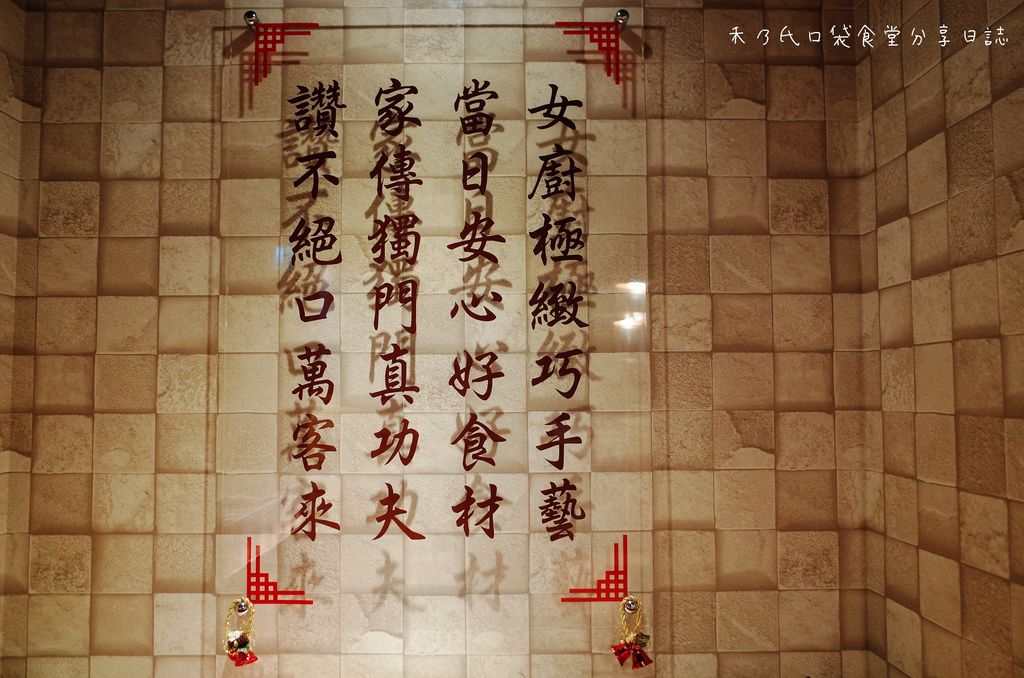 禾乃氏口袋食堂分享日誌
女廚極緻巧手藝
當日安心好食材
家傳獨門真功夫
讚不絕口萬客來